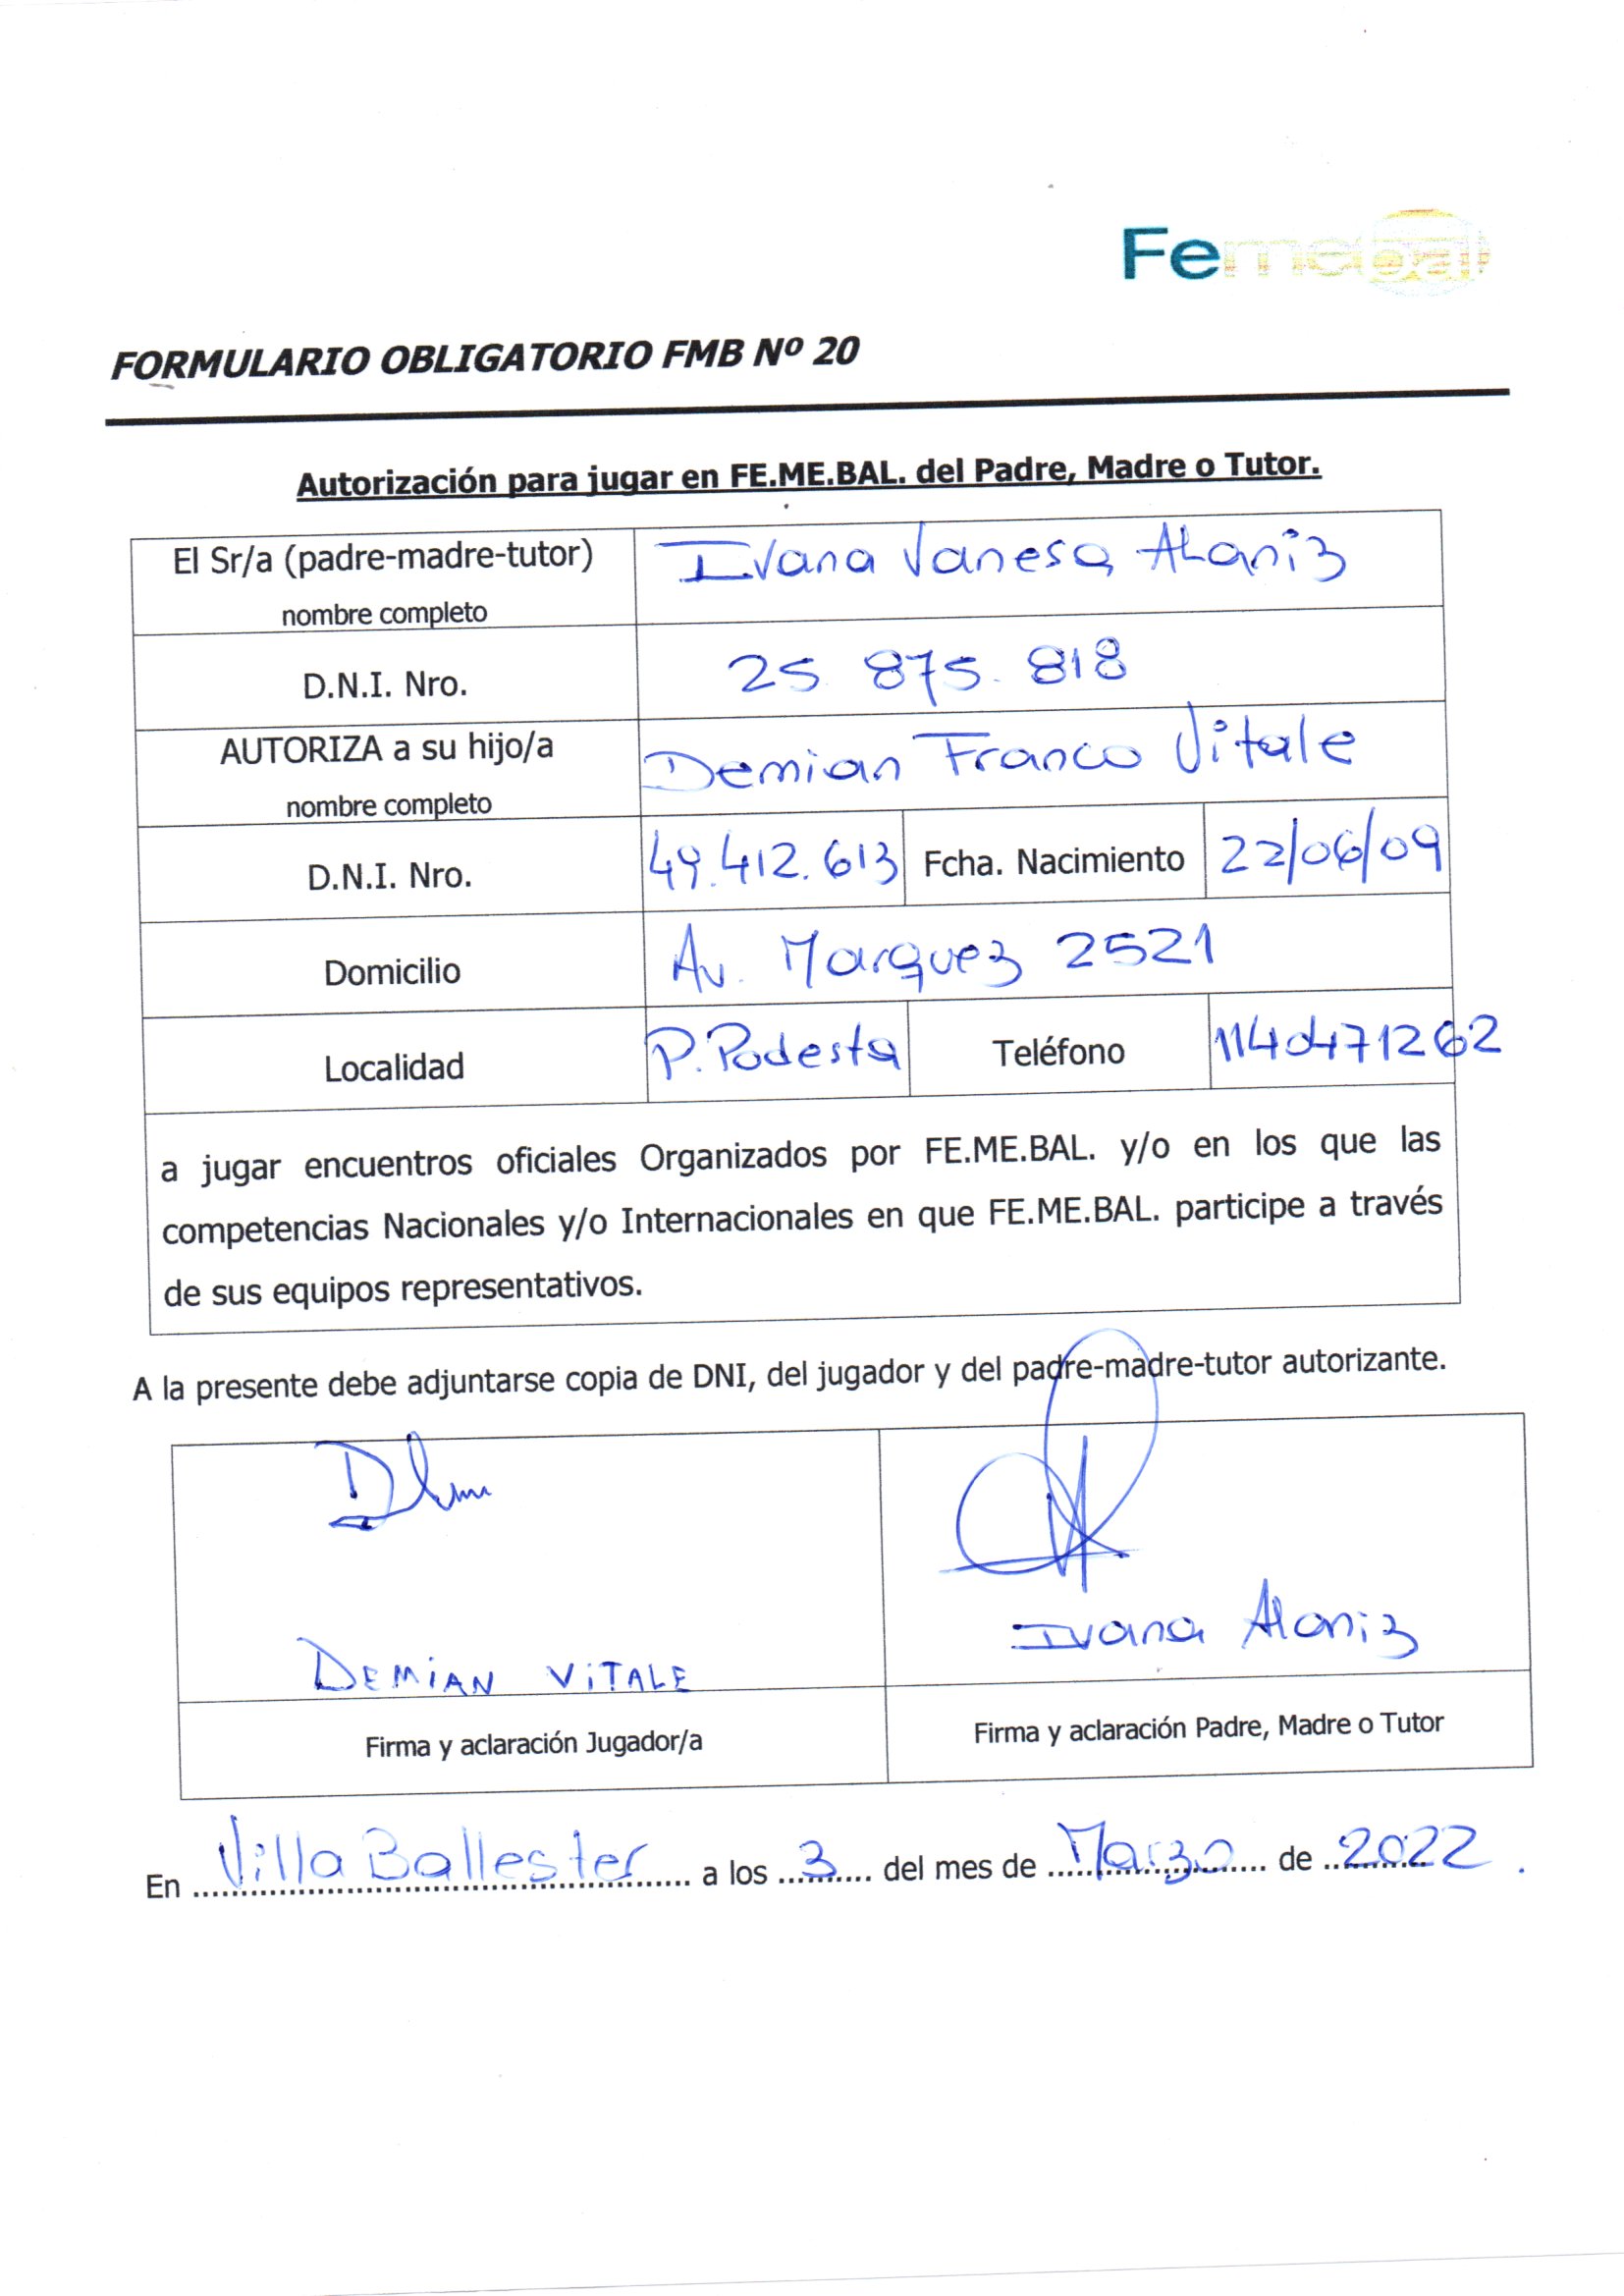 Femebal
FORMULARIO OBLIGATORIO FMB Nº 20
Autorización para jugar en FE.ME.BAL. del Padre, Madre o Tutor.
El Sr/a (padre-madre-tutor) Ivana Vanesa Alaniz
nombre completo
D.N.I. Nro. 25 875. 818
AUTORIZA a su hijo/a Demian Franco Vitale
nombre completo
D.N.I. Nro. 49.412.613 Fcha. Nacimiento 22/06/09
Domicilio Av. Marquez 2521
Localidad P. Podesta Teléfono 1140471262
a jugar encuentros oficiales Organizados por FE.ME.BAL. y/o en los que las
competencias Nacionales y/o Internacionales en que FE.ME.BAL. participe a través
de sus equipos representativos.
A la presente debe adjuntarse copia de DNI, del jugador y del padre-madre-tutor autorizante.
Ivana Alaniz
DEMIAN VITALE
Firma y aclaración Jugador/a Firma y aclaración Padre, Madre o Tutor
En Villa Ballester a los 3 del mes de Marzo de 2022.